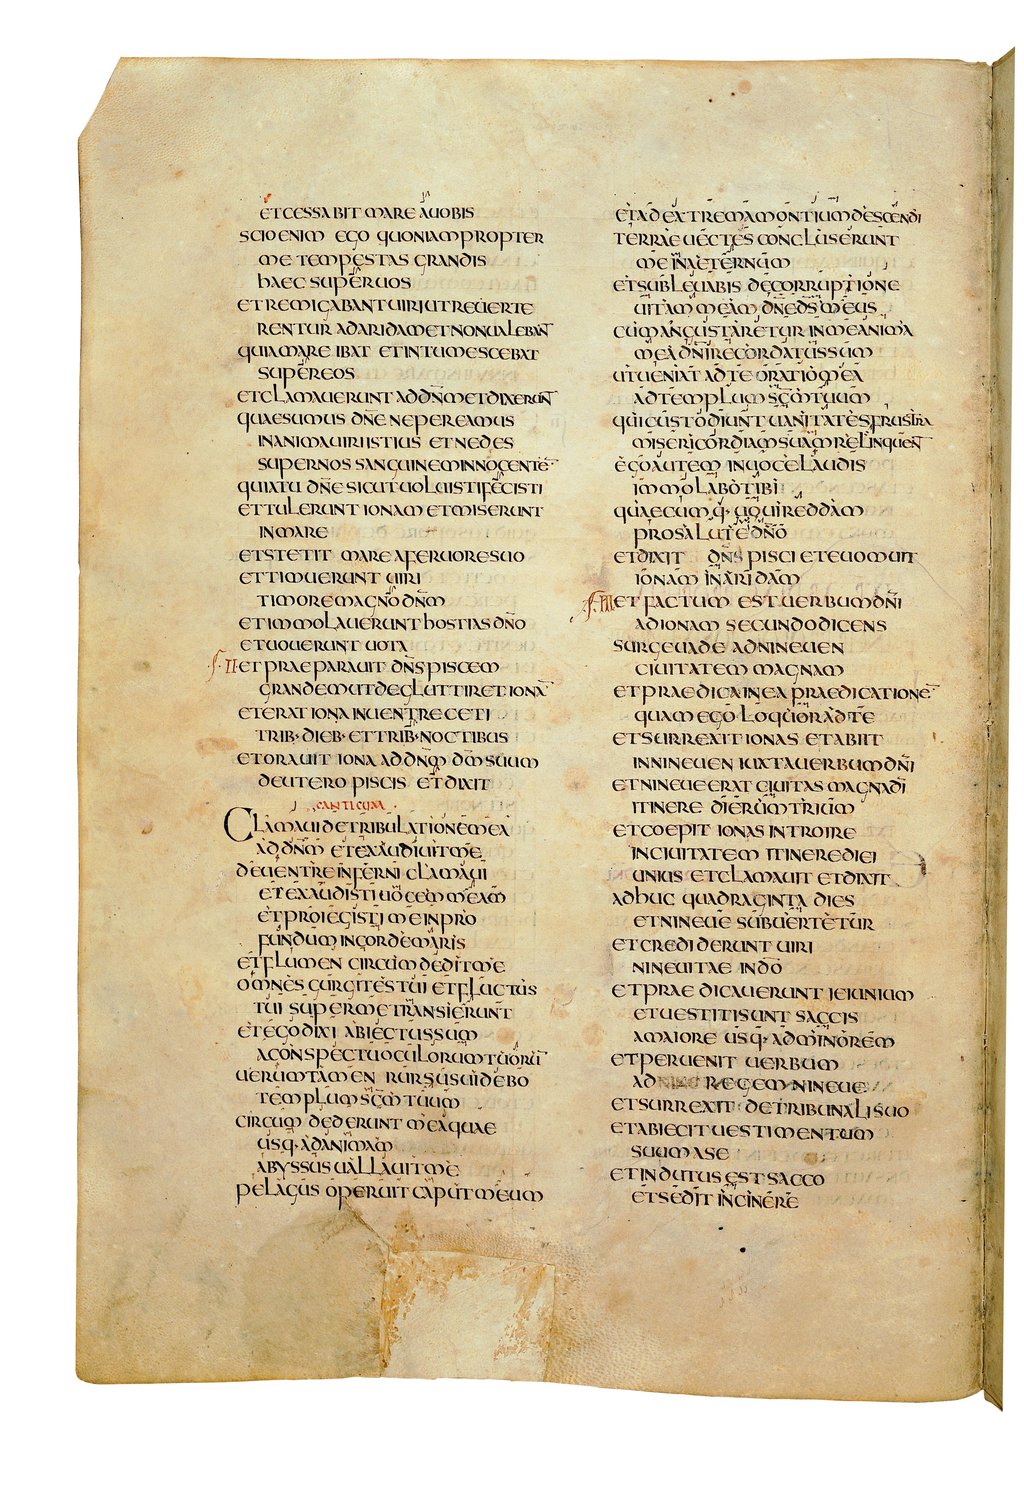 ET CESSABIT MARE A UOBIS
SCIO ENIM EGO QUONIAM PROPTER
ME TEMPESTAS GRANDIS
HAEC SUPER UOS
ET REMIGABANT UIRI UT REUERTE
RENTUR AD ARIDAM ET NON UALEBAN̅
QUIA MARE IBAT ET INTUMESCEBAT
SUPER EOS
ET CLAMAUERUNT AD DN̅M ET DIXERUN̅
QUAESUMUS DN̅E NE PEREAMUS
IN ANIMA UIRI ISTIUS ET NE DES
SUPER NOS SANGUINEM INNOCENTE̅
QUIA TU DN̅E SICUT UOLUISTI FECISTI
ET TULERUNT IONAM ET MISERUNT
IN MARE
ET STETIT MARE A FERUORE SUO
ET TIMUERUNT UIRI
TIMORE MAGNO DN̅M
ET IMMOLAUERUNT HOSTIAS DN̅O
ET UOUERUNT UOTA
II ET PRAEPARAUIT DN̅S PISCEM
GRANDEM UT DEGLUTTIRET IONA̅
ET ERAT IONA IN UENTRE CETI
TRIB· DIEB· ET TRIB· NOCTIBUS
ET ORAUIT IONA AD DN̅M D̅M SUUM
DE UTERO PISCIS ET DIXIT
CANTICUM
CLAMAUI DE TRIBULATIONE MEA
AD DN̅M ET EXAUDIUIT ME
DE UENTRE INFERNI CLAMAUI
ET EXAUDISTI UOCEM MEAM
ET PROIEGISTI ME IN PRO
FUNDUM IN CORDE MARIS
ET FLUMEN CIRCUMDEDIT ME
OMNES GURGITES TUI ET FLUCTUS
TUI SUPER ME TRANSIERUNT
ET EGO DIXI ABIECTUS SUM
A CONSPECTU OCULORUM TUORU̅
UERUMTAMEN RURSUS UIDEBO
TEMPLUM SC̅M TUUM
CIRCUMDEDERUNT ME AQUAE
USQ· AD ANIMAM
ABYSSUS UALLAUIT ME
PELAGUS OPERUIT CAPUT MEUM
ET AD EXTREMA MONTIUM DESCENDI
TERRAE UECTES CONCLUSERUNT
ME IN AETERNUM
ET SUBLEUABIS DE CORRUPTIONE
UITAM MEAM DN̅E D̅S MEUS
CUM ANGUSTARETUR IN ME ANIMA
MEA DN̅I RECORDATUS SUM
UT UENIAT AD TE ORATIO MEA
AD TEMPLUM SC̅M TUUM
QUI CUSTODIUNT UANITATES FRUSTRA
MISERICORDIAM SUAM RELINQUEN̅T
EGO AUTEM IN UOCE LAUDIS
IMMOLABO TIBI
QUAECUMQ· UOUI REDDAM
PRO SALUTE DN̅O
ET DIXIT DN̅S PISCI ET EUOMUIT
IONAM IN ARIDAM
III ET FACTUM EST UERBUM DN̅I
AD IONAM SECUNDO DICENS
SURGE UADE AD NINEUEN
CIUITATEM MAGNAM
ET PRAEDICA IN EA PRAEDICATIONE̅
QUAM EGO LOQUOR AD TE
ET SURREXIT IONAS ET ABIIT
IN NINEUEN IUXTA UERBUM DN̅I
ET NINEUE ERAT CIUITAS MAGNA DI̅
ITINERE DIERUM TRIUM
ET COEPIT IONAS INTROIRE
IN CIUITATEM ITINERE DIEI
UNIUS ET CLAMAUIT ET DIXIT
ADHUC QUADRAGINTA DIES
ET NINEUE SUBUERTETUR
ET CREDIDERUNT UIRI
NINEUITAE IN DO̅
ET PRAEDICAUERUNT IEIUNIUM
ET UESTITI SUNT SACCIS
A MAIORE USQ· AD MINOREM
ET PERUENIT UERBUM
AD REGEM NINEUE
ET SURREXIT DE TRIBUNALI SUO
ET ABIECIT UESTIMENTUM
SUUM A SE
ET INDUTUS EST SACCO
ET SEDIT IN CINERE